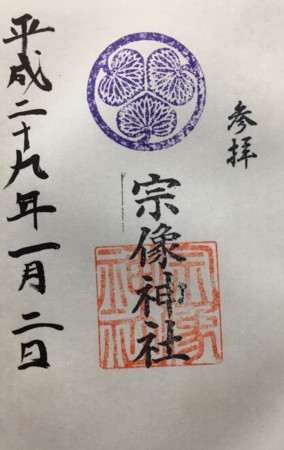 参拝
宗像神社
宗像
神社
平成二十九年一月二日